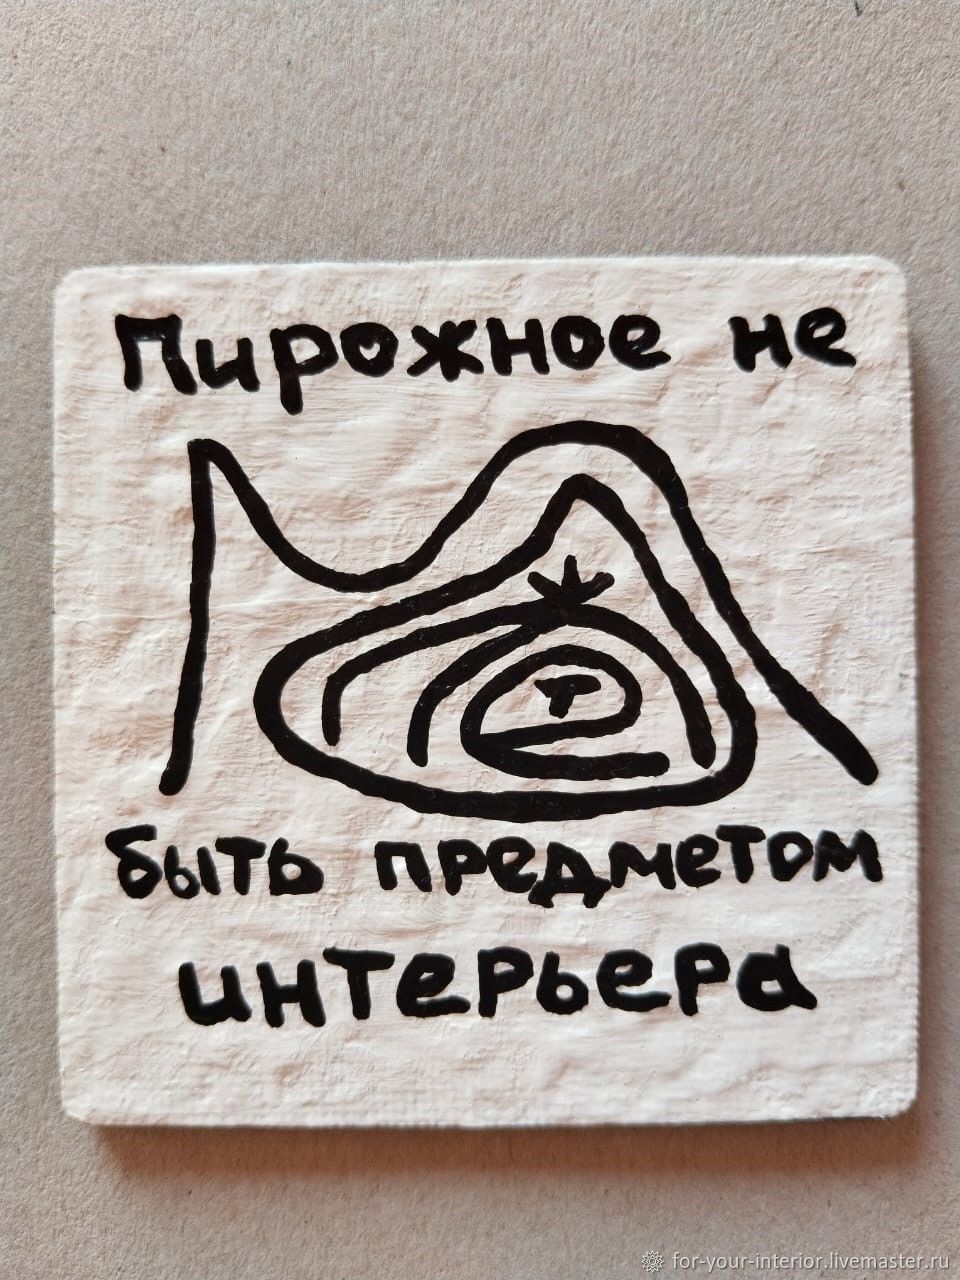 Пирожное не
т
быть предметом
интерьера
for-your-interior.livemaster.ru